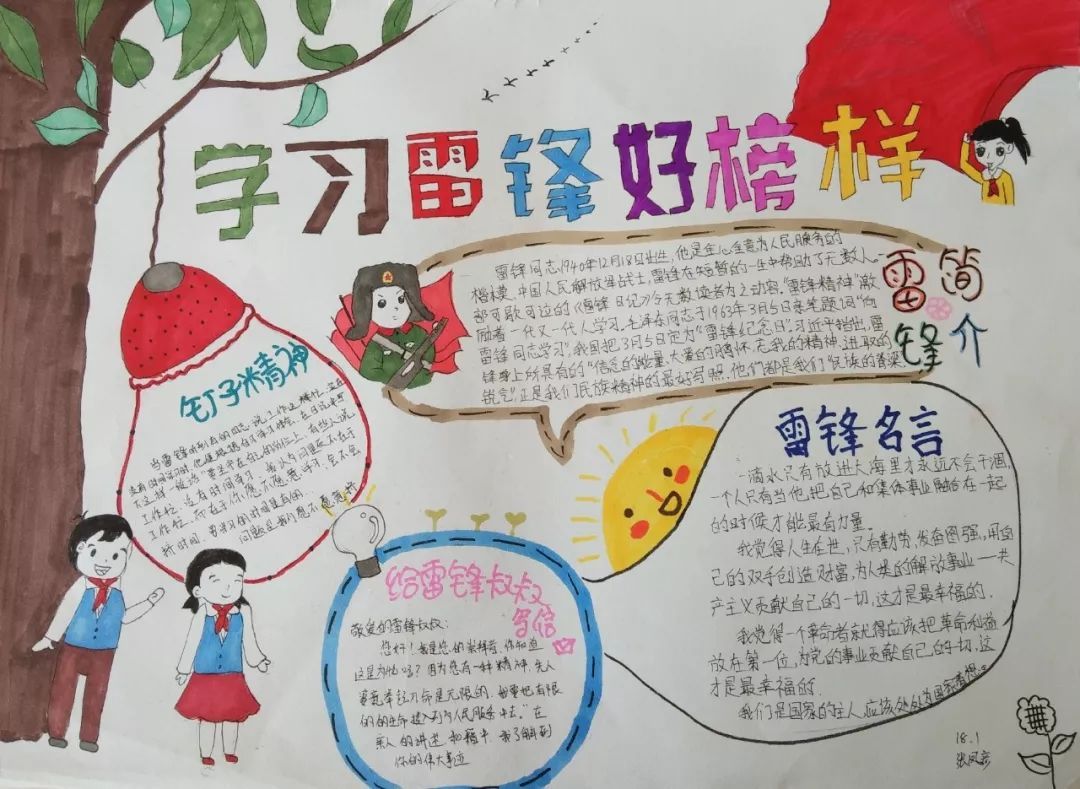 学习雷锋好榜样
雷锋简介
雷锋同志1940年12月18日出生,他是全心全意为人民服务的
楷模、中国人民解放军战士,雷锋在短暂的一生中帮助了无数人,一
部可歌可泣的《雷锋日记》令无数读者为之动容。"雷锋精神"激
励着一代又一代人学习。毛泽东同志于1963年3月5日亲笔题词"向
雷锋同志学习",我国把3月5日定为"雷锋纪念日"。习近平指出,雷
锋身上所具有的"信念的能量、大爱的胸怀、忘我的精神、进取的
锐气",正是我们民族精神的最好写照,他们都是我们"民族的脊梁"
钉子精神
工作忙、没有时间学习,我认为问题不在于
工作忙,而在于你愿不愿意学习,会不会
挤时间。要学习的时间是有的,
问题是我们愿不愿意挤
雷锋名言
一滴水只有放进大海里才永远不会干涸,
一个人只有当他把自己和集体事业融合在一起
的时候才能最有力量。
我觉得人生在世,只有勤劳,发奋图强,用自
己的双手创造财富,为人类的解放事业一共
产主义贡献自己的一切,这才是最幸福的.
我觉得一个革命者就得应该把革命利益
放在第一位,为党的事业贡献自己的一切,这
才是最幸福的.
我们是国家的主人,应该处处为国家着想。
给雷锋叔叔
写信
敬爱的雷锋叔叔:
您好!我是您的崇拜者,你知道
这是为什么吗?因为您有一种精神,
的的生命投入到为人民服务中去。"在
你的伟大事迹
18.1